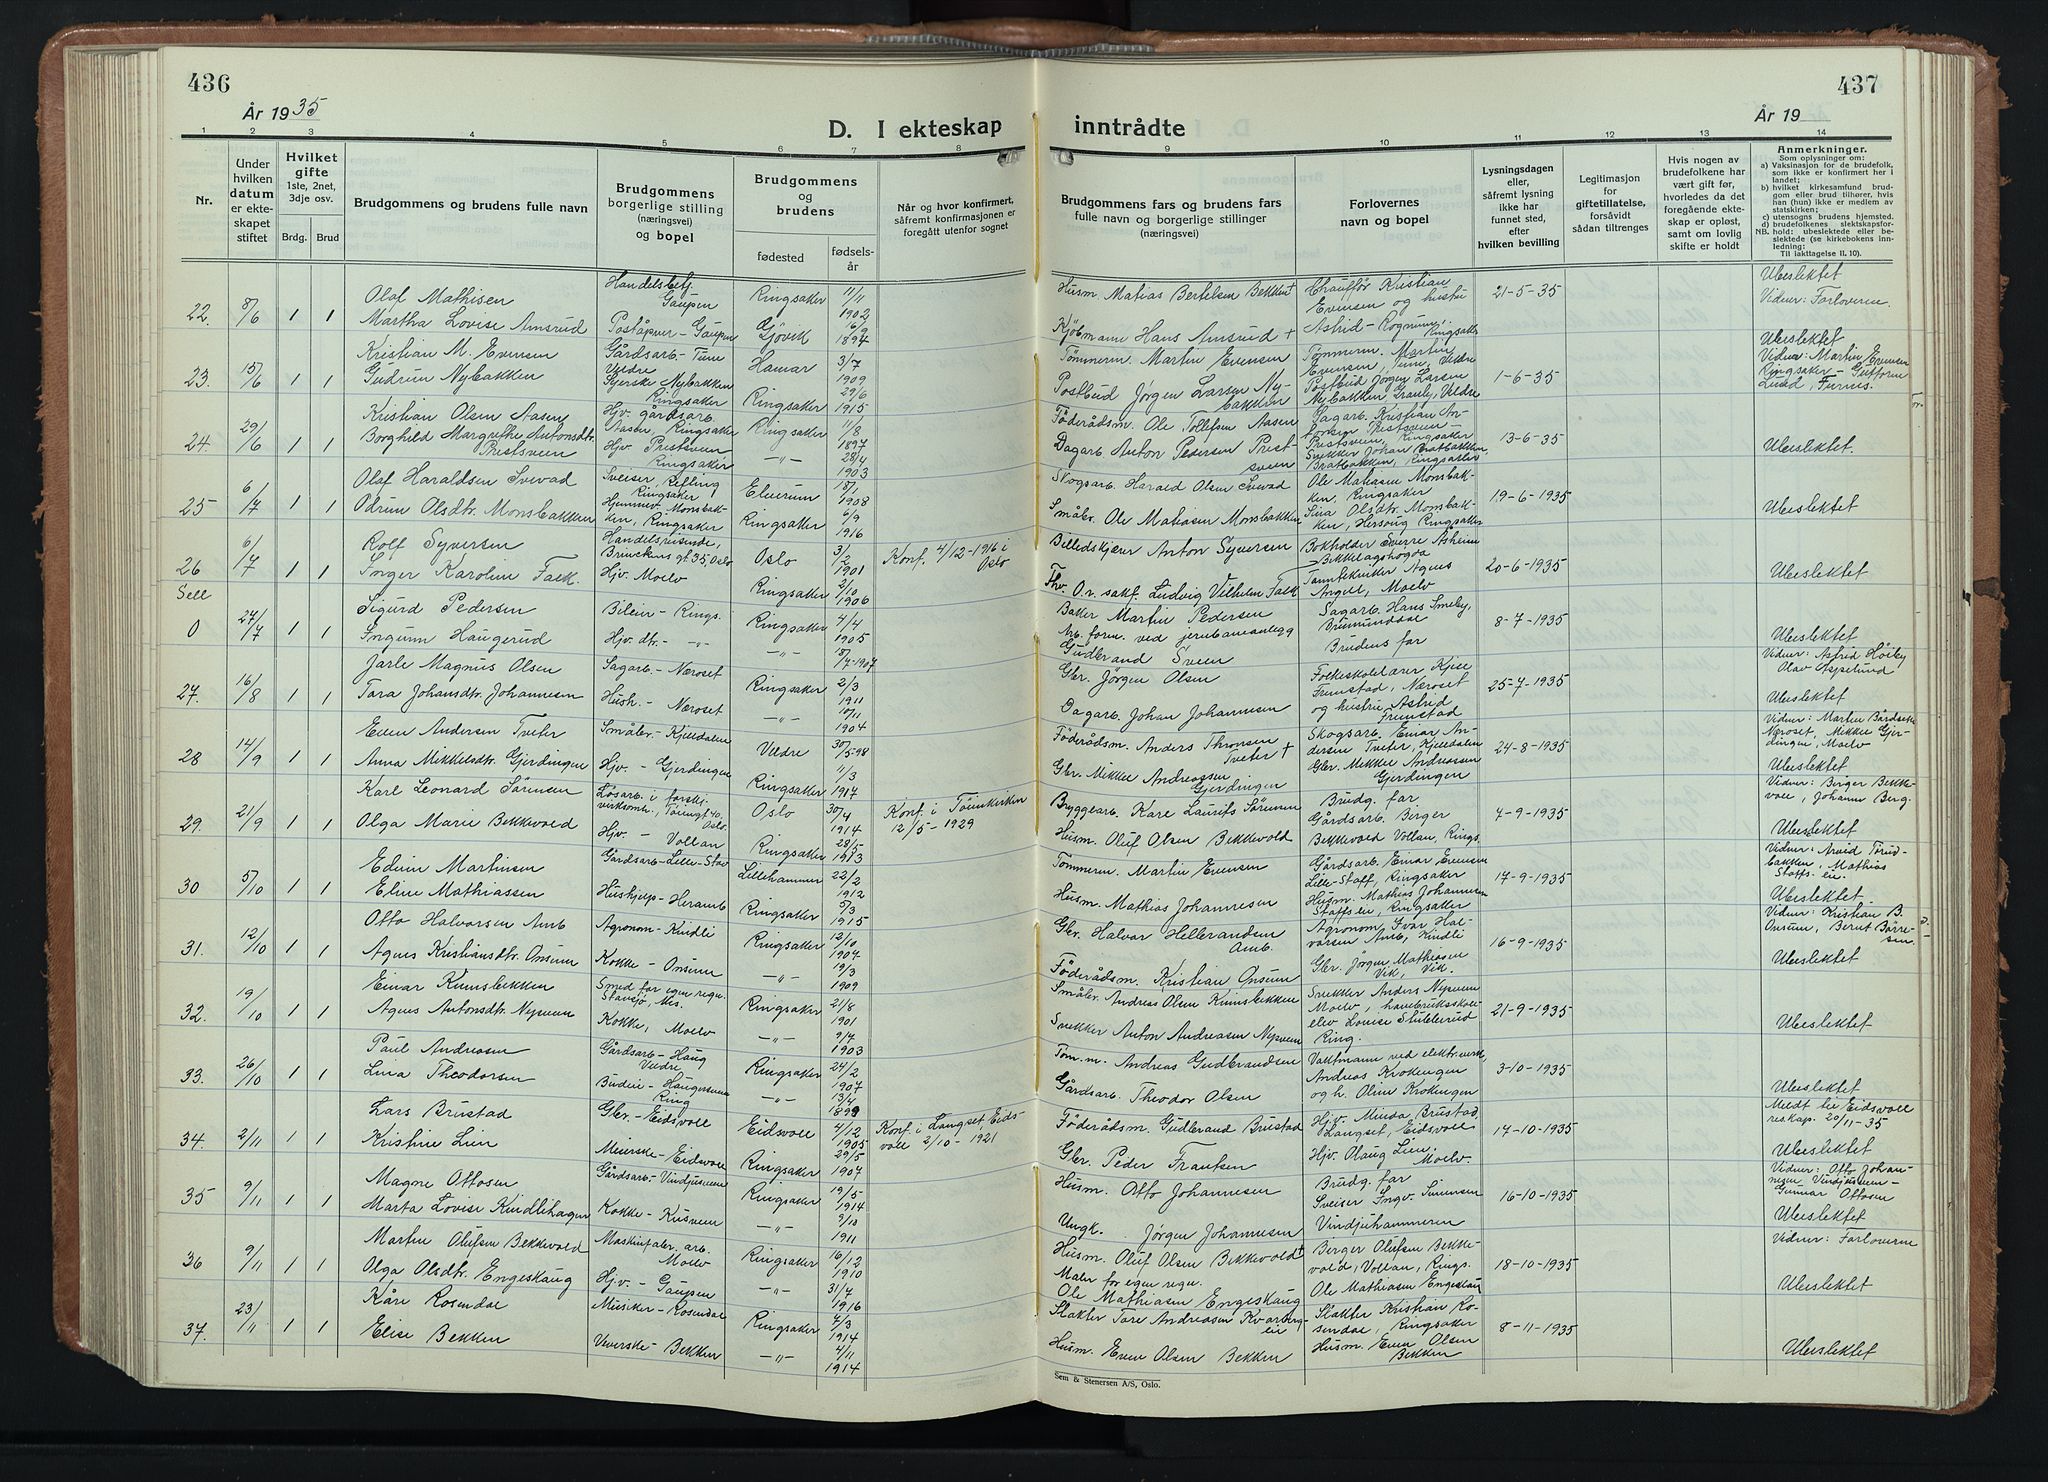 436
År 1935
D. I ekteskap
1
2
3
4
5
6
7
8
Nr.
Under hvilken datum er ekteskapet stiftet
Hvilket gifte
1ste, 2net, 3dje osv.
Brdg.
Brud
Brudgommens og brudens fulle navn
Brudgommens borgerlige stilling (næringsvei) og bopel
Brudgommens og brudens
fødested
fødselsår
Når og hvor konfirmert, såfremt konfirmasjonen er foregått utenfor sognet
22. 8/6 1 1
Olaf Mathisen
Gaupen
Ringsaker 11/11 1902
Martha Lovise Amsrud
Gaupen
Gjøvik 16/9 1894
23. 15/6 1 1
Kristian M. Evensen
Gårdsarb. - Tune Veldre
Hamar 3/7 1909
Gudrun Nybakken
Nybakken Ringsaker
Ringsaker 29/6 1915
24. 29/6 1 1
Kristian Olsen Aasen
Hjv. gårdsarb. Aasen, Ringsaker
Ringsaker 11/8 1897
Borghild Margrethe Antonsdtr. Prestsveen
Hjv. Prestsveen Ringsaker
-"- 28/4 1903
25 6/7 1 1
Olaf Haraldsen Svevad
Sveiser, Ringsaker
Elverum 18/1 1908
Odrun Olsdtr. Monsbakken
Monsbakken, Ringsaker
Ringsaker 6/9 1916
26 6/7 1 1
Rolf Syversen
Handelsreisende, Brinckens gt. 35, Oslo
Oslo 3/2 1901
Konf. 4/12-1916 i Oslo
Inger Karoline Falk.
Hjv. Moelv
Ringsaker 2/10 1906
Sell
0 27/7 1 1
Sigurd Pedersen
Bileier - Rings.
Ringsaker 4/4 1905
Ingunn Haugerud
Hjv. dtr. - -"-
-"- 18/7-1907
27. 16/8 1 1
Jarle Magnus Olsen
Sagarb. - Næroset
Ringsaker 2/3 1911
Tara Johansdtr. Johannesen
Hush. - Næroset
-"- 10/11 1904
28 14/9 1 1
Even Andersen Tveter
Småbr. - Kjelldalen
Veldre 30/5-98
Anna Mikkelsdtr. Gjerdingen
Hjv. - Gjerdingen
Ringsaker 11/3 1917
29. 21/9 1 1
Karl Leonard Sørensen
Løsarb. i forskj. virksomh., Oslo
Oslo 30/4 1914
Konf. i Tøienkirken 12/5-1929
Olga Marie Bekkevold
Hjv. - Vollan
Ringsaker 28/5 1913
30 5/10 1 1
Edvin Martinsen
Gårdsarb. - Lille-Stav
Lillehammer 22/2 1912
Eline Mathiassen
Hushjelp - Heramb
Ringsaker 5/3 1915
31. 12/10 1 1
Otto Halvorsen Amb
Agronom - Kindli
Ringsaker 12/10 1904
Agnes Kristiansdtr. Onsum
Kokke - Onsum
-"- 19/3 1909
32. 19/10 1 1
Einar Kinnsbekken
Smed for egen regn. Stavsjø, Nes.
Ringsaker 21/8 1901
Agnes Antonsdtr. Nysveen
Kokke, Moelv
-"- 9/4 1903
33. 26/10 1 1
Paul Andreasen
Gårdsarb. - Haug Veldre
Ringsaker 24/2 1907
Lina Theodorsen
Budeie - Haugersveen Ring
-"- 13/4 1899
34. 2/11 1 1
Lars Brustad
Gbr. - Eidsvoll
Eidsvoll 4/12 1905
Konf. i Langset, Eidsvoll 2/10-1921
Kristine Lien
Meierske - Eidsvoll
Ringsaker 29/5 1907
35 9/11 1 1
Magne Ottosen
Gårdsarb. - Vindjusveen
Ringsaker 19/5 1914
Marta Lovise Kindlihagen
Kokke - Krisveen
-"- 9/10 1911
36 9/11 1 1
Martin Olufsen Bekkevold
Moelv
Ringsaker 16/12 1910
Olga Olsdtr. Engeskaug
Hjv. - Gaupen
-"- 31/7 1916
37. 23/11 1 1
Kåre Rosendal
Musiker - Rosendal
Ringsaker 4/3 1914
Elise Bekken
Veverske - Bekken
-"- 4/11 1914
437
År 19
inntrådte
9
10
11
12
13
14
Brudgommens fars og brudens fars fulle navn og borgerlige stillinger (næringsvei)
Forlovernes navn og bopel
Lysningsdagen eller, såfremt lysning ikke har funnet sted, efter hvilken bevilling
Legitimasjon for giftetillatelse, forsåvidt sådan tiltrenges
Hvis nogen av brudefolkene har vært gift før, hvorledes da det foregående ekteskap er opløst, samt om lovlig skifte er holdt
Anmerkninger.
Som oplysninger om:
a) Vaksinasjon for de brudefolk, som ikke er konfirmert her i landet;
b) hvilket kirkesamfund brudgom eller brud tilhører, hvis han (hun) ikke er medlem av statskirken;
c) utensogns brudens hjemsted.
d) brudefolkenes slektskapsforhold: ubeslektede eller beslektede (se kirkebokens innledning:
NB. Til iakttagelse II. 10).
Husm. Mathias Bertelsen Bekken +
Chauffør Kristian Evensen og hustru Astrid - Rognmo, Ringsaker
21-5-35
Ubeslektet
Vidner: Forloveren.
Kjøbmann Hans Amsrud +
Tømmerm. Martin Evensen
Tømmerm. Martin Evensen, Tune, Veldre
1-6-35
Ubeslektet
Vidner: Martin Evensen Ringsaker - Guttorm Lund, Furnes.
Postbud Jørgen Larsen Nybakken
Postbud Jørgen Larsen Nybakken, Veldre
Føderådsm. Ole Tollefsen Aasen
Sagarb. Kristian Prestsveen, Ringsaker
13-6-35
Ubeslektet.
Dagarb. Anton Pedersen Prestsveen
Snekker Johan Bratbakken, Bratbakken, Ringsaker
Skogsarb. Harald Olsen Svevad
Ole Mathiasen Monsbakken, Ringsaker
19-6-1935
Ubeslektet
Småbr. Ole Mathiasen Monsbakken
Lina Olsdtr. Monsbakken, Ringsaker
Billedskjærer Anton Syversen
Bokholder Sverre Asheim Bekkelagshøgda
20-6-1935
Ubeslektet
Thv. O.r. sakf. Ludvig Vilhelm Falk
Tanntekniker Agnes Angell, Moelv
Baker Martin Pedersen
Sagarb. Hans Smeby, Brumunddal
8-7-1935
Ubeslektet
Vidner: Astrid Høiby Olav Aspelund
Arb. form. ved jernbaneanlegg Gudbrand Sveen
Brudens far
Gbr. Jørgen Olsen
Folkeskolelærer Fremstad, Næroset og hustru Astrid Fremstad
25-7-1935
Ubeslektet
Vidner: Martin Næroset, Mikkel Gjerdingen, Moelv
Dagarb. Johan Johannesen
Føderådsm. Anders Thronsen Tveter +
Skogsarb. Einar Andersen Tveter, Kjelldalen
24-8-1935
Ubeslektet
Vidner: Birger Bekkevold, Johann Berg.
Gbr. Mikkel Andreassen Gjerdingen
Gbr. Mikkel Andreassen Gjerdingen
Bryggearb. Karl Laurits Sørensen
Brudg. far
4-9-1935
Ubeslektet
Husm. Oluf Olsen Bekkevold
Gårdsarb. Birger Bekkevold Vollan, Rings.
Vidner: Arvid Mathias
Tømmerm. Martin Evensen
Gårdsarb. Einar Evensen Lille-Staff, Ringsaker
17-9-1935
Ubeslektet.
Husm. Mathias Johannesen
Husm. Mathias Johannesen Ringsaker
Vidner: Kristian B. Onsum, Bernt
Gbr. Halvor Hellerandsen Amb.
Agronom Ivar Halvorsen Amb, Kindli
16-9-1935
Ubeslektet
Føderådsm. Kristian Onsum
Gbr. Jørgen Matheasen Vik, Vik.
Småbr. Andreas Olsen Kinnsbekken
Snekker Anders Nysveen Moelv,
21-9-1935
Ubeslektet
Snekker Anton Andreasen Nysveen
Louise Ring.
Tøm.m. Andreas Gudbrandsen
Vaktmann ved elektr.verk, Andreas Krokengen og h. Oline Krokengen
3-10-1935
Ubeslektet
Gårdsarb. Theodor Olsen
Meldt til Eidsvoll 20/11-35
Føderådsm. Gudbrand Brustad
Hjv. Minda Brustad, Langset, Eidsvoll
17-10-1935
Ubeslektet
Gbr. Peder Frantsen
Hjv. Olaug Lien, Moelv.
Vidner: Otto Johannesen Vindjusveen - Gunnar Ottosen
Husm. Otto Johannesen
Brudg. far
16-10-1935
Ubeslektet
Ungk. Jørgen Johannesen
Sveiser Ingv. Simensen Vindjuhammeren
Vidner: Forloverne
Husm. Oluf Olsen Bekkevold +
Birger Olufsen Bekkevold, Vollan, Rings.
18-10-1935
Ubeslektet
Maler for egen regn. Ole Mathiasen Engeskaug
Ole Mathiasen Engeskaug
Slakter Tore Andreasen
Slakter Kristian Rosendal, Ringsaker
8-11-1935
Ubeslektet
Husm. Even Olsen Bekken
Husm. Even Olsen Bekken
Sem & Stenersen A/S, Oslo.